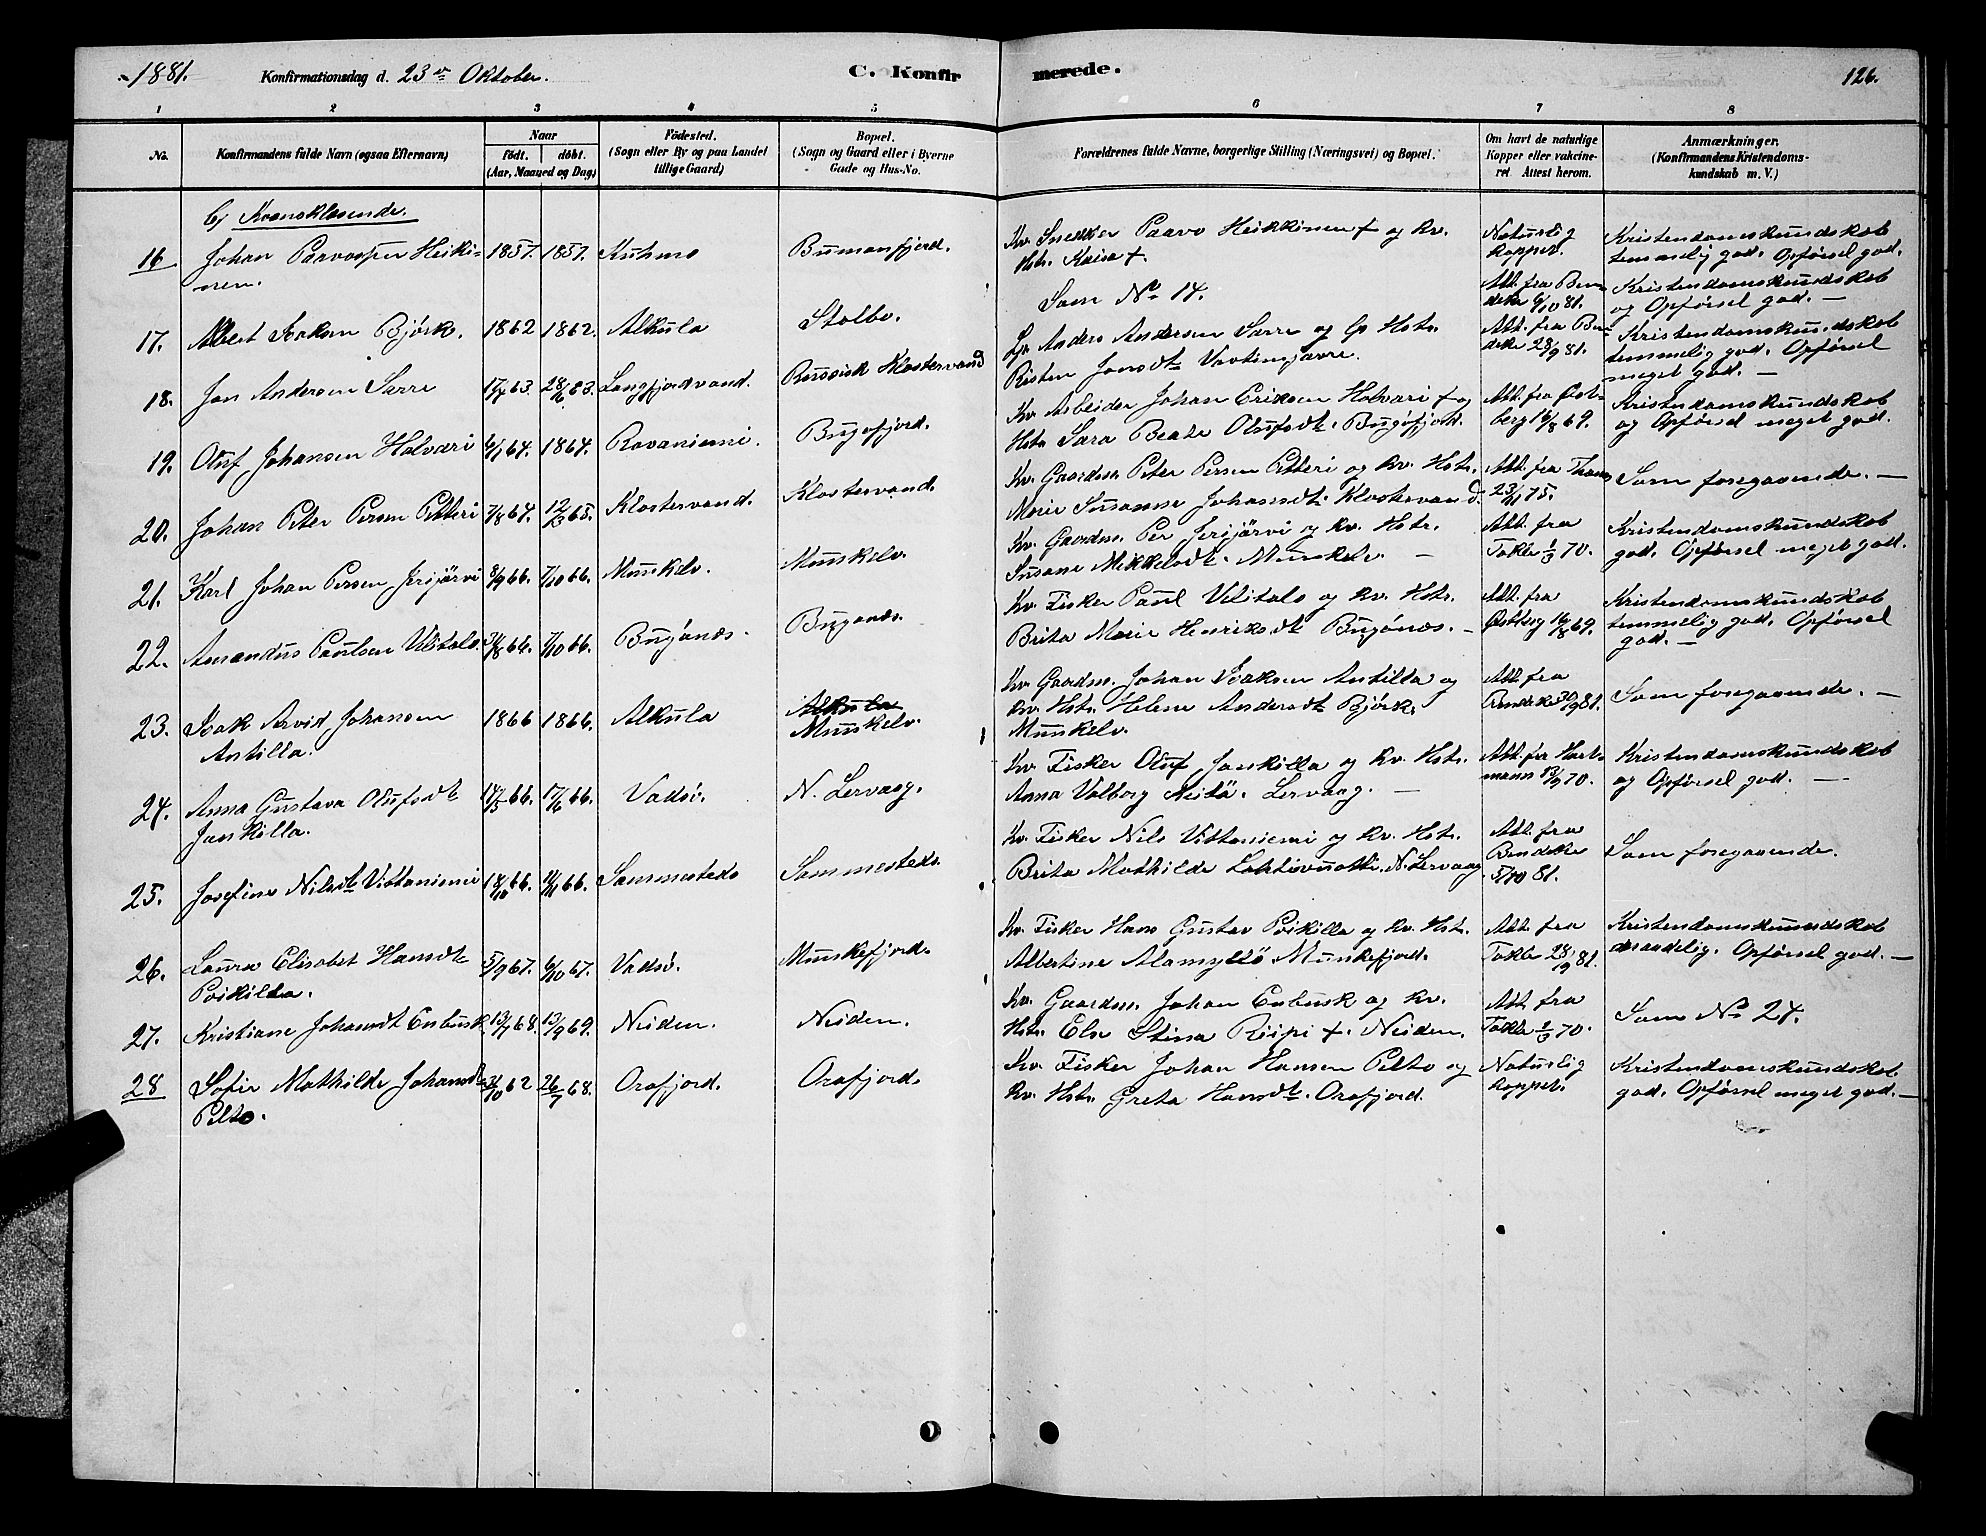 1881.
Konfirmationsdag d. 23de Oktober.
C. Konfirmerede.
126.
1 2 3 4 5 6 7 8
No.
Konfirmandens fulde Navn (ogsaa Efternavn)
Naar
födt. döbt.
(Aar, Maaned og Dag)
Födested.
(Sogn eller By og paa Landet
tillige Gaard)
Bopæl.
(Sogn og Gaard eller i Byerne
Gade og Hus-No.
Forældrenes fulde Navne, borgerlige Stilling (Næringsvei) og Bopæl.
Om havt de naturlige
Kopper eller vakcine-
ret. Attest herom.
Anmærkninger.
(Konfirmandens Kristendoms-
kundskab m. V.)
16 Johan Paavosøn Heiki-
nen. 1857. 1857. Kuhmo Bumansfjord.
Kv. Snekker Paavo Heikkinen † og Kv.
Hstr. Kaisa †.
Naturlig
Kopper.
Kristendomskundskab
temmelig god. Opførsel god.
17. Albert Isaksen Bjørk. 1862 1862. Alkula Stolbo.
Som No 14.
Att. fra Ben-
deke 6/10 81.
Kristendomskundskab
og Opførsel god. —
18. Jon Andersen Sarre 17/ 63. 28/ 63. Langfjordvand. Russisk Klostervand
Lp. Anders Andersen Sarre og Lp. Hstr.
Risten Jonsdt.
Att. fra Ben-
deke 28/9 81.
Kristendomskundskab
temmelig god. Opførsel
meget god. —
19. Oluf Johansen Holvari 6/1 64. 1864. Rovaniemi. Bugøfjord.
Kv. Arbeider Johan Eriksen Holvari † og
Hstr. Sara Beate Olufsdt. Bugøfjord.
Att. fra Øst-
berg 16/8 69.
Kristendomskundskab
og Opførsel meget god.
20. Johan Peter Persen Petteri 7/8 64. 12/3 65. Klostervand. Klostervand.
Kv. Gaardm. Peter Persen Petteri og Kv. Hstr.
Marie Susanne Johansdt. Klostervand.
Att. fra
75.
Som foregaaende. —
21. Karl Johan Persen Jerijärvi 8/9 66. 7/10 66. Munkelv. Munkelv.
Kv. Gaardm. Per Jerijärvi og Kv. Hstr.
Susane Mikkelsdt. Munkelv. —
Att. fra
Takle 1/3 70.
Kristendomskundskab
god. Opførsel meget god.
22. Amandus Paulsen Ulitalo. 31/8 64. 7/10 66. Bugönæs. Bugönæs.
Kv. Fisker Paul Ulitalo og Kv. Hstr.
Brita Marie Henriksdt. Bugönæs. —
Att. fra
16/8 69.
Kristendomskundskab
temmelig god. Opførsel
god. —
23. Isak Arvid Johansen
Antilla. 1866 1866. Alkula Alkula
Munkelv.
Kv. Gaardm. Johan Isaksen Antilla og
Kv. Hstr. Helene Andersdt. Bjørk.
Munkelv.
Att. fra
Bendeke 30/9 81.
Som foregaaende. —
24. Anna Gustava Olufsdt.
Jankilla. 17/5 66. 17/6 66. Vadsö. N. Lervaag.
Kv. Fisker Oluf Jankilla og Kv. Hstr.
Anna Valborg Lervaag. —
Att. fra Hart-
mann 13/9 70.
Kristendomskundskab
og Opførsel god. —
25. Josefine Nilsdt. Vittaniemi 18/10 66. 4/11 66. Sammesteds Sammesteds
Kv. Fisker Nils Vittaniemi og Kv. Hstr.
Brita Mathilde N. Lervaag
Att. fra
Bendeke
5/10 81.
Som foregaaende.
26. Laura Elisabet Hansdt.
Poikilla. 5/9 67. 6/10 67. Vadsö. Munkefjord.
Kv. Fisker Hans Gustav Poikilla og Kv. Hstr.
Albertine Alamyllö Munkefjord.
Att. fra
Takle 28/9 81.
Kristendomskundskab
maadelig. Opførsel god. —
27. Kristiane Johansdt. Enbusk. 13/1 68. 13/9 69. Neiden. Neiden.
Kv. Gaardm. Johan Enbusk og Kv.
Hstr. Else Stina Riipi †. Neiden.
Att. fra
Takle 1/3 70.
Som No 24.
28 Sofie Mathilde Johansdt.
Pelto. /10 62 26/7 68. Orafjord. Orafjord.
Kv. Fisker Johan Hansen Pelto og
Kv. Hstr. Greta Hansdt. Orafjord.
Naturlig
Kopper.
Kristendomskundskab
god. Opførsel meget god. —